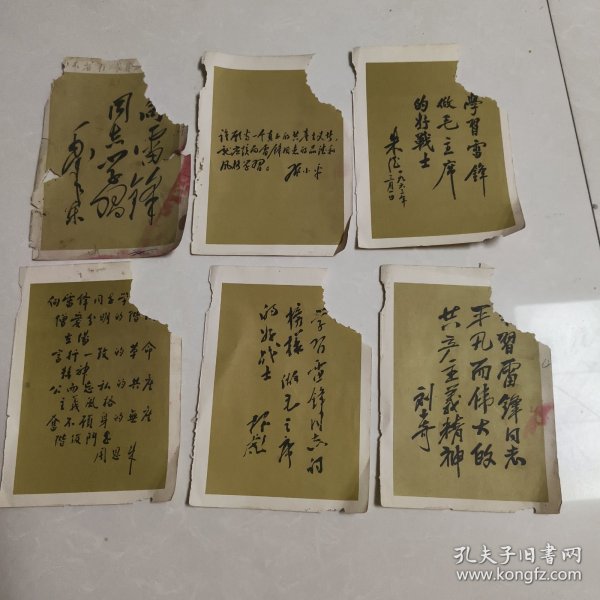 向雷锋
同志学习
毛泽东
谁愿当一个真正的共产主义者，
就应该向雷锋同志的品德和
风格学习。
邓小平
學習雷鋒
做毛主席
的好戰士
朱德
一九六三年
二月
向雷鋒同志
憎愛分明的階
言行一致的革命
精神
公而忘私的共産
主義風格
奮不顧身的無産
階級鬥志
周恩来
学习雷锋同志的
榜樣 做毛主席
的好战士
習雷鋒同志
平凡而偉大的
共产主義精神
刘少奇
孔夫子旧书网
www.kongfz.com